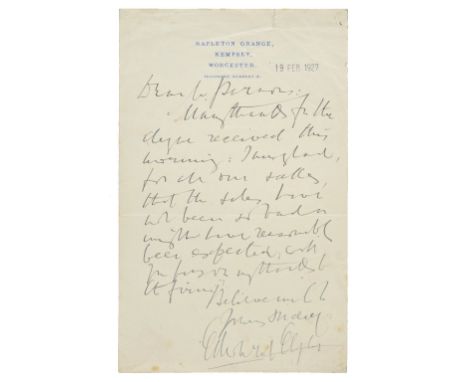 NAPLETON GRANGE,
KEMPSEY,
WORCESTER.
19 FEB 1927
Dear Mr
Many thanks for the
cheque received this
morning: I am glad,
for all our sakes,
that the sales have
not been so bad as
might have reasonably
been expected, with
Believe me to be
Yours sincerely
Edward Elgar